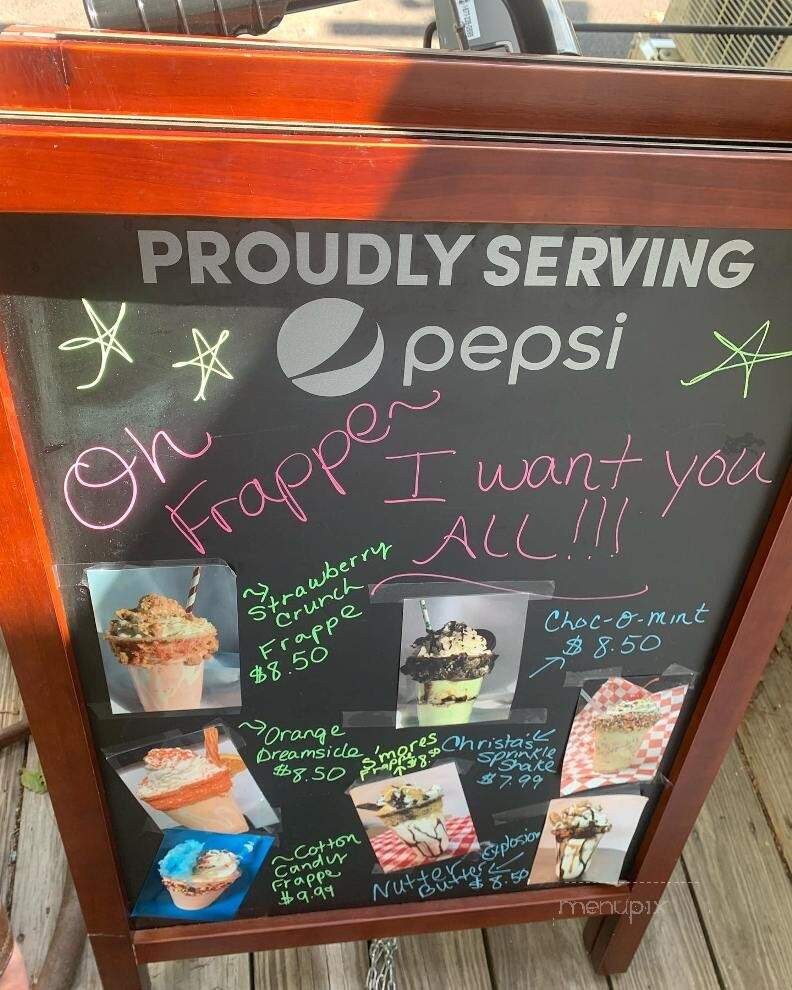 PROUDLY SERVING
pepsi
Oh
Frappe~
I want you
ALL!!!
~Strawberry
Crunch
Frappe
$8.50
Choc-o-mint
$8.50
~Orange
Dreamsicle
$8.50
S'mores
Frappe $8.50
Christa's
Sprinkle
Shake
$7.99
~Cotton
Candy
Frappe
$9.99
Nutter Explosion
Butter $8.50
menupix